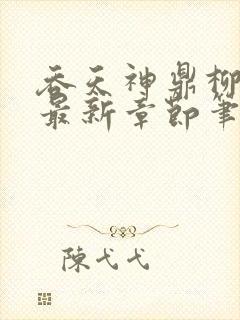 吞天神鼎柳
最新章節筆
陳弋弋